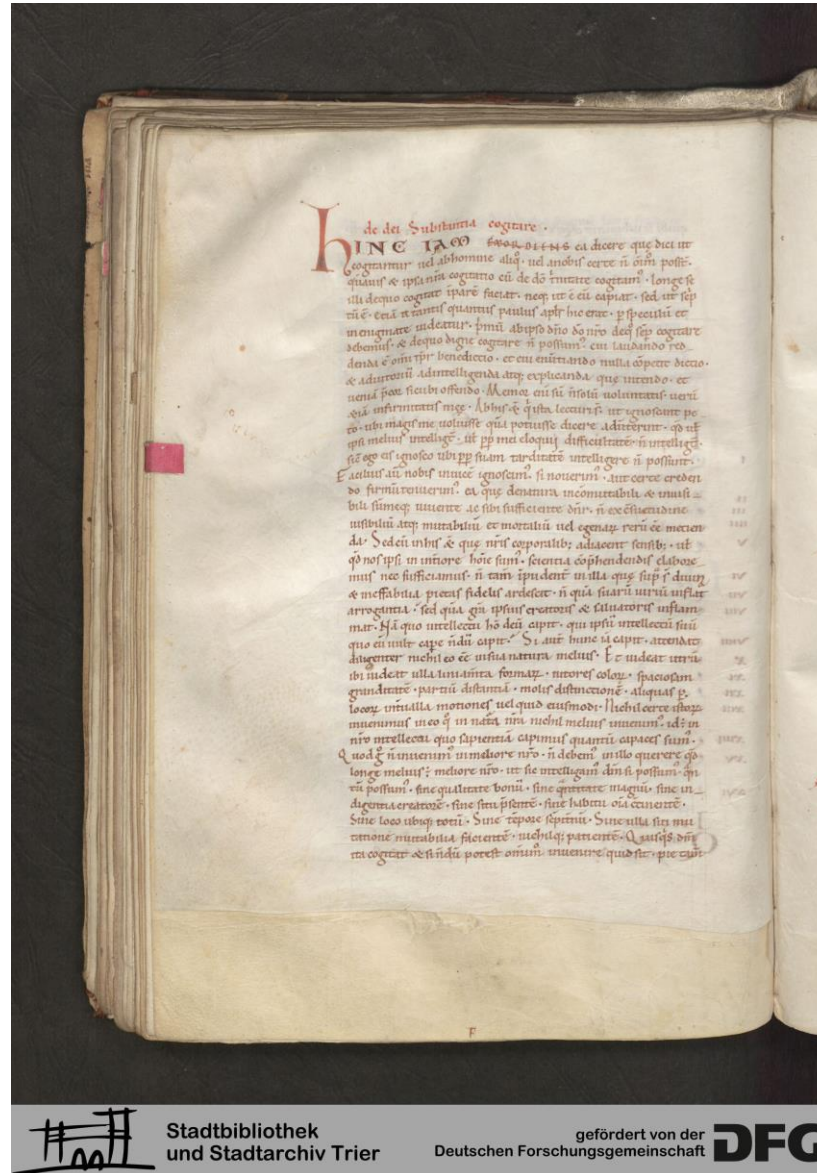 de dei Substantia cogitare ·
HINC IAM EXORDIENS ea dicere que dici ut
cogitantur uel ab homine aliq̊ · uel a nobis certe n̄ om̄i
quāuis & ipsa nr̄a cogitatio cū de dō trinitate cogitam᷒ · longe se
illi de quo cogitat īparē · neq; ut ē eū capiat · sed ut
etiā a tantis quantus paulus apl̄s hic erat · p speculū et
in enigmate uideatur · p̄mū ab ipso dn̄o dō nr̄o de q̊ sēp cogitare
debemus · & de quo digne cogitare n̄ possum᷒ · cui laudando red_
denda ē om̄i benedictio · et cui enūtiando nulla cōpetit dictio ·
& adiutoriū ad intelligenda atq; explicanda que intendo · et
ueniā p̄cor sicubi offendo · Memor sū n̄ solū uoluntatis · uerū
&iā infirmitatis mee · Ab his & ista lecturi s̄ · ut ignoscant pe_
to · ubi magis me uoluisse quā potuisse dicere aduerterint ·
ipsi melius intelligt̄ · ut̄ pp̄ mei eloquii difficultatē n̄ intelligt̄ ·
sic̄ ego eis ignosco ubi pp̄ suam tarditatē intelligere n̄ possunt ·
Facilius aū nobis inuicē ignoscim᷒ si nouerim᷒ · aut certe creden
do firmū tenuerim᷒ ea que de natura incōmutabili & inuisi_
bili sūmeq; uiuente ac sibi sufficiente dn̄r · n̄ ex cōsuetudine
uisibiliū atq; mutabiliū et mortaliū uel egenaꝝ rerū ēē metien
da · Sed cū in his & que nr̄is corporalib; adiacent sensib; · ut̄
qd̄ nos ipsi in int̄iore hōie sum᷒ · scientia cōp̄hendendis elabore_
mus nec sufficiamus · n̄ tam̄ īpudent̄ in illa que sup̄ s̄ diuina
& ineffabilia pietas fidelis ardescit · n̄ quā suarū uiriū inflat
arrogantia · sed quā gr̄a ipsius creatoris & saluatoris inflam_
mat · Nā quo intellectu hō deū capit · qui ipsū intellectū suū
quo eū uult cape n̄dū capit · Si aut̄ hunc iā capit · attendat
diligenter nichil eo ēē in sua natura melius · Et uideat utrū
ibi uideat ulla liniam̄ta formaꝝ · nitores coloꝝ · spaciosam
granditatē · partiū distantiā · molis distinctionē · aliquas p
locoꝝ int̄ualla motiones uel quid eiusmodi · Nichil certe istoꝝ
inuenimus in eo q̊ in nat̄a nr̄a nichil melius inuenim᷒ · id; in
nr̄o intellectu quo sapientiā capimus quantū capaces sum᷒ ·
Quod g̊ n̄ inuenim᷒ in meliore nr̄o · n̄ debem᷒ in illo querere qd̄
longe melius ē meliore nr̄o · ut sic intelligam᷒ dm̄ si possum᷒ · qn̄
tū possum᷒ · sine qualitate bonū · sine qn̄titate magnū · sine in_
digentia creatorē · sine situ p̄sentē · sine habitu om̄ia cōtinentē ·
Sine loco ubiq; totū · Sine tēpore sēpitnū · Sine ulla sui mu
tatione mutabilia facientē · nichilq; patientē · Quisq̇s dm̄
ita cogitat & si n̄dū potest inuenire quid sit · pie tam̄
F
Stadtbibliothek
und Stadtarchiv Trier
gefördert von der
Deutschen Forschungsgemeinschaft
DFG